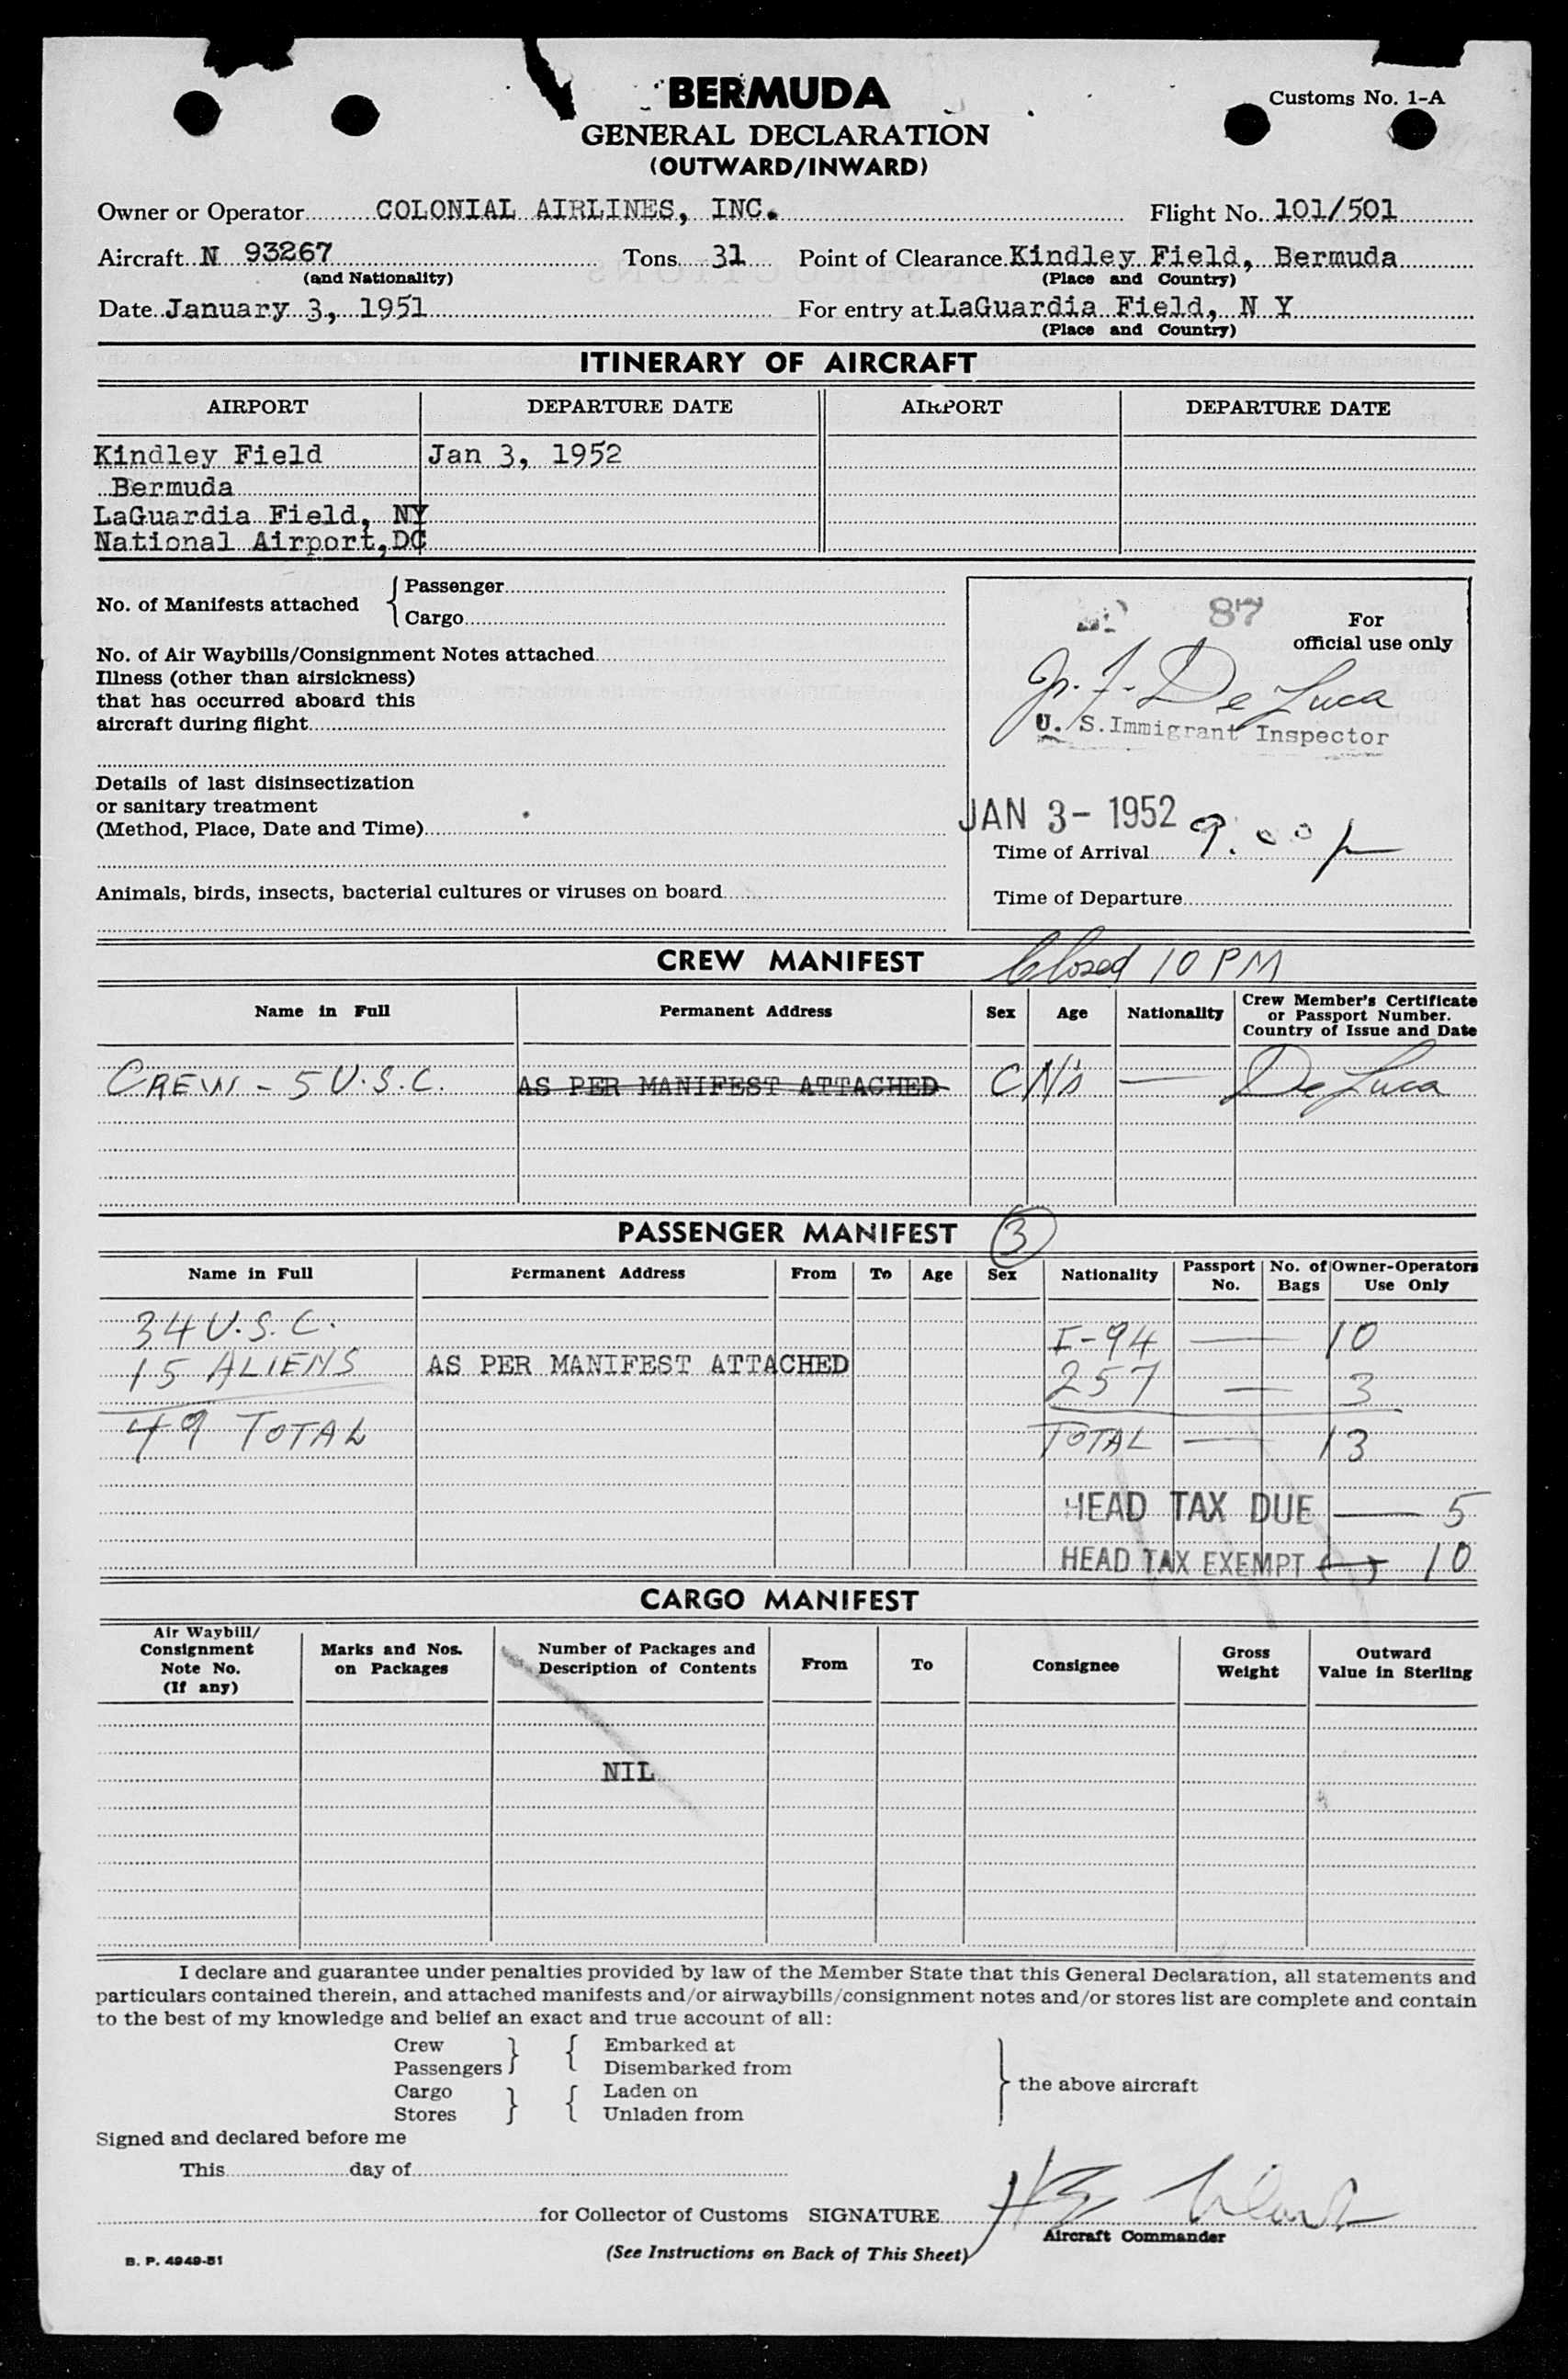 BERMUDA
Customs No. 1-A
GENERAL DECLARATION
(OUTWARD/INWARD)
Owner or Operator COLONIAL AIRLINES, INC. Flight No. 101/501
Aircraft N 93267 Tons 31 Point of Clearance Kindley Field, Bermuda
(and Nationality) (Place and Country)
Date January 3, 1951 For entry at LaGuardia Field, N Y
(Place and Country)
ITINERARY OF AIRCRAFT
AIRPORT DEPARTURE DATE AIRPORT DEPARTURE DATE
Kindley Field Jan 3, 1952
Bermuda
LaGuardia Field, NY
National Airport, DC
No. of Manifests attached { Passenger
Cargo
No. of Air Waybills/Consignment Notes attached
Illness (other than airsickness)
that has occurred aboard this
aircraft during flight
Details of last disinsectization
or sanitary treatment
(Method, Place, Date and Time)
Animals, birds, insects, bacterial cultures or viruses on board
87 For
official use only
De Luca
U. S. Immigrant Inspector
JAN 3- 1952 9:00 p
Time of Arrival
Time of Departure
CREW MANIFEST Closed 10 PM
Name in Full Permanent Address Sex Age Nationality Crew Member's Certificate or Passport Number. Country of Issue and Date
CREW - 5 U.S.C. AS PER MANIFEST ATTACHED C N's — De Luca
PASSENGER MANIFEST 3
Name in Full Permanent Address From To Age Sex Nationality Passport No. No. of Bags Owner-Operators Use Only
34 U.S.C. I-94 — 10
15 ALIENS AS PER MANIFEST ATTACHED 257 — 3
49 TOTAL TOTAL — 13
HEAD TAX DUE — 5
HEAD TAX EXEMPT (—) 10
CARGO MANIFEST
Air Waybill/ Consignment Note No. (If any) Marks and Nos. on Packages Number of Packages and Description of Contents From To Consignee Gross Weight Outward Value in Sterling
NIL
I declare and guarantee under penalties provided by law of the Member State that this General Declaration, all statements and
particulars contained therein, and attached manifests and/or airwaybills/consignment notes and/or stores list are complete and contain
to the best of my knowledge and belief an exact and true account of all:
Crew } { Embarked at
Passengers Disembarked from
Cargo } { Laden on
Stores Unladen from
} the above aircraft
Signed and declared before me
This day of
for Collector of Customs SIGNATURE
Aircraft Commander
B. P. 4949-51 (See Instructions on Back of This Sheet)